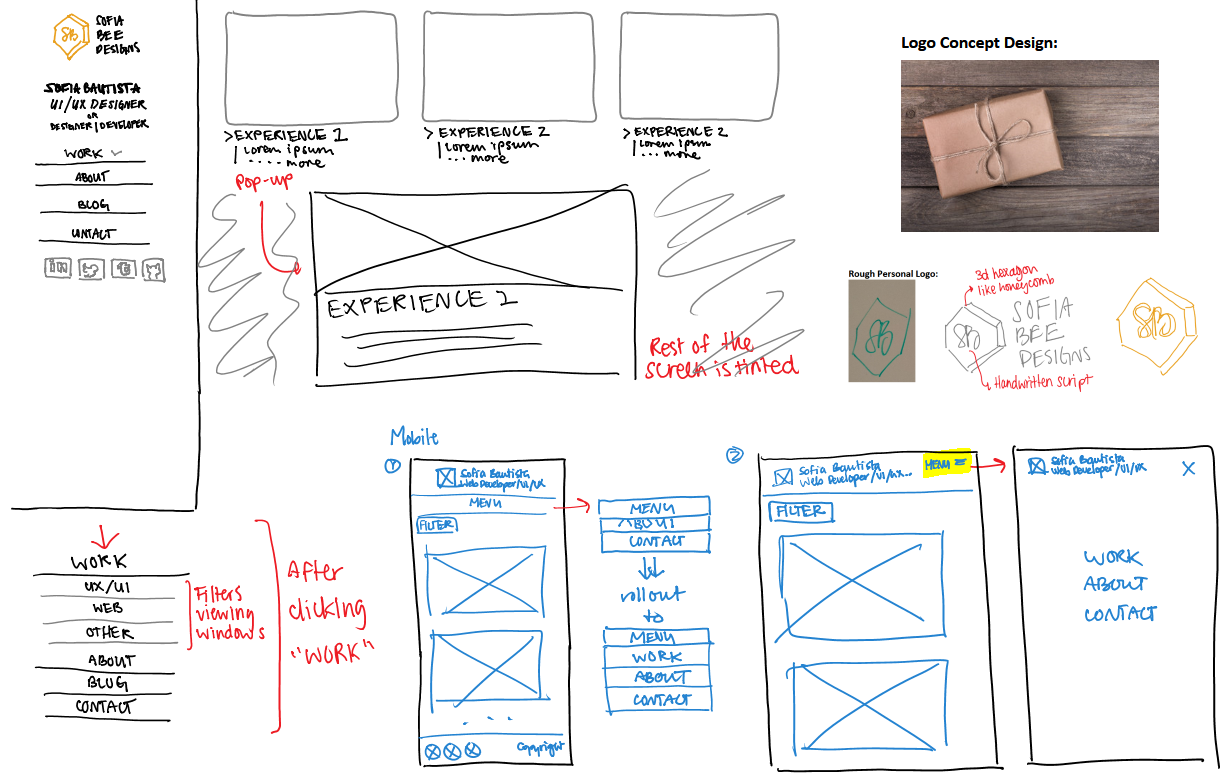 SOFIA
BEE
DESIGNS
SB
SOFIA BAUTISTA
UI/UX DESIGNER
OR
DESIGNER/DEVELOPER
WORK
ABOUT
BLOG
CONTACT
in
>EXPERIENCE 1
Lorem ipsum
.... more
> EXPERIENCE 2
Lorem ipsum
... more
> EXPERIENCE 2
Lorem ipsum
... more
Pop-up
EXPERIENCE 2
Rest of the
screen is tinted
Logo Concept Design:
Rough Personal Logo:
SB
3d hexagon
like honeycomb
SB
SOFIA
BEE
DESIGNS
Handwritten script
SB
WORK
UX/UI
WEB
OTHER
ABOUT
BLOG
CONTACT
Filters
viewing
windows
After
clicking
"WORK"
Mobile
1
Sofia Bautista
Web Developer/UI/UX
MENU
FILTER
...
Copyright
MENU
ABOUT
CONTACT
rollout
to
MENU
WORK
ABOUT
CONTACT
2
Sofia Bautista
Web Developer/UI/UX...
MENU
FILTER
Sofia Bautista
Web Developer/UI/UX
X
WORK
ABOUT
CONTACT